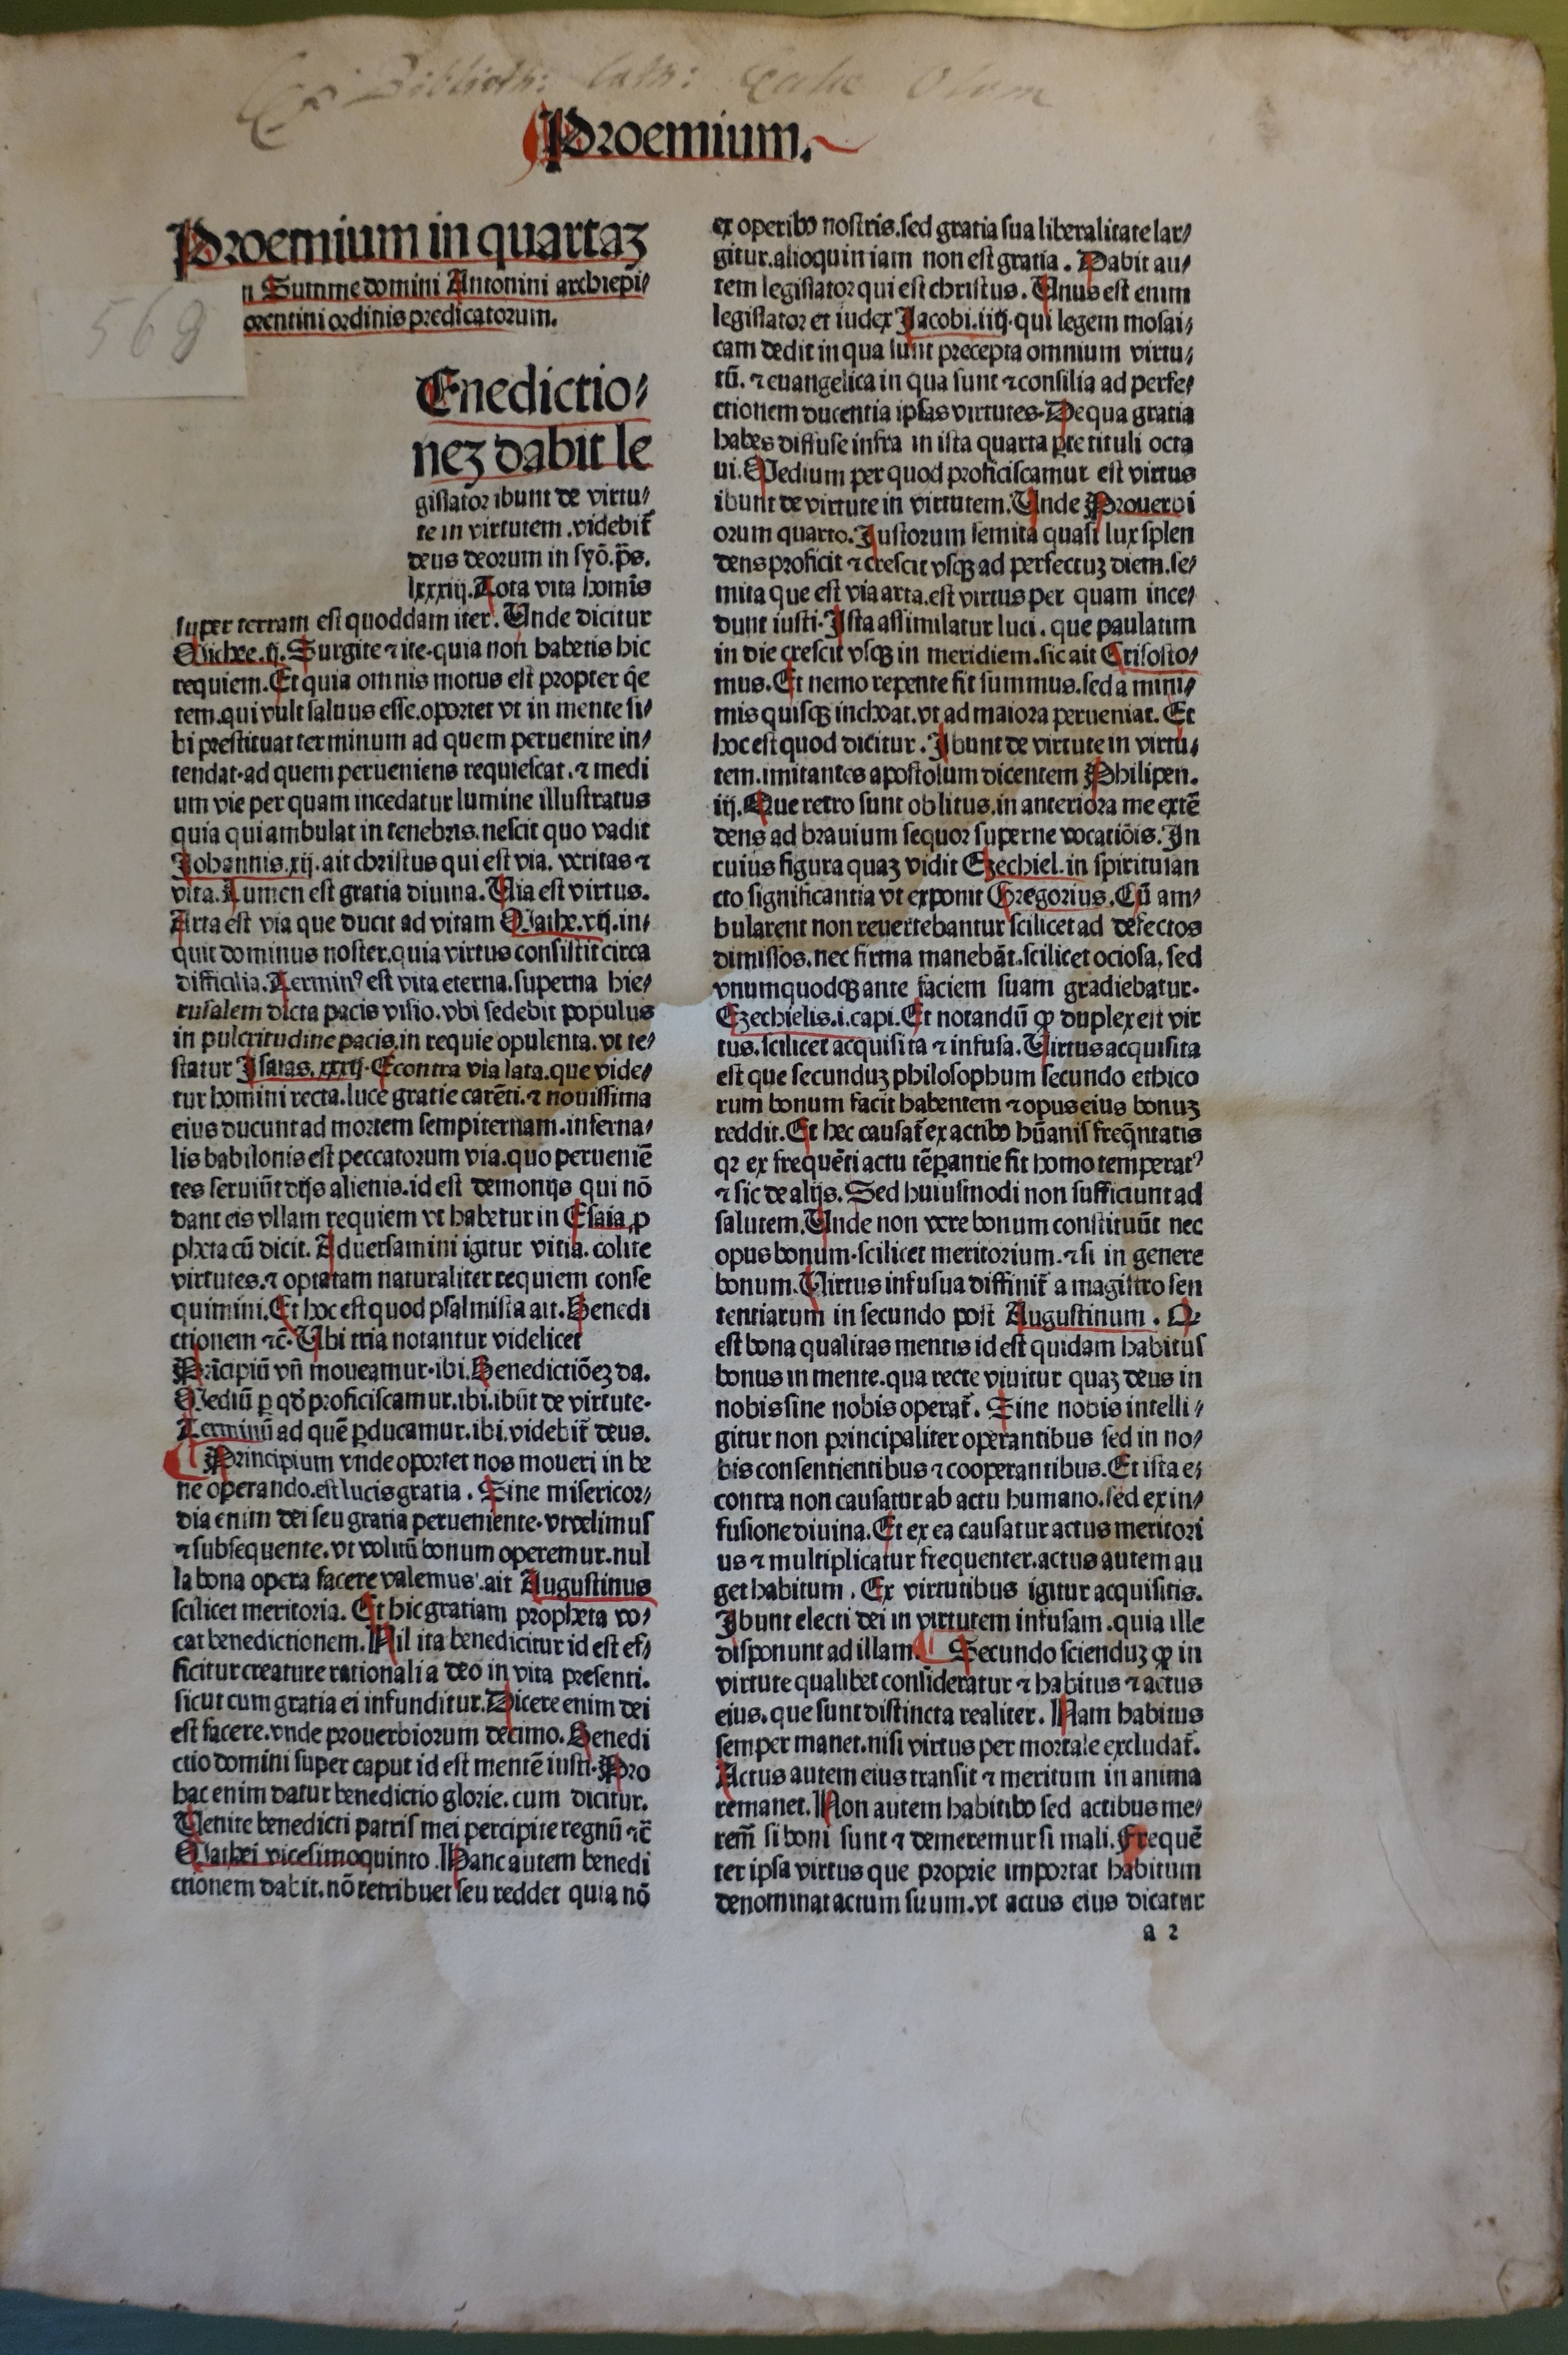 Ex Biblioth: Cath: Eccliæ Olom
Proemium.
Proemium in quartaʒ
568
Summe domini Antonini archiepi⸗
orentini ordinis predicatorum.
Enedictio⸗
neʒ dabit le
gislator ibunt de virtu⸗
te in virtutem .videbit̄
deus deorum in syō.p̄s.
lxxxiij. Tota vita homīs
super terram est quoddam iter. Unde dicitur
Michee.ij. Surgite ⁊ ite.quia non habetis hic
requiem. Et quia omnis motus est propter q̇e
tem.qui vult saluus esse.oportet vt in mente si⸗
bi prestituat terminum ad quem peruenire in⸗
tendat.ad quem perueniens requiescat.⁊ medi
um vie per quam incedatur lumine illustratus
quia qui ambulat in tenebris.nescit quo vadit
Johannis.xij. ait christus qui est via. veritas ⁊
vita. Lumen est gratia diuina. Via est virtus.
Arta est via que ducit ad vitam Mathe.vij.in⸗
quit dominus noster.quia virtus consistit circa
difficilia. Terminꝰ est vita eterna.superna hie⸗
rusalem dicta pacis visio.vbi sedebit populus
in pulcritudine pacis.in requie opulenta. vt te⸗
statur Isaias.xxxij. Econtra via lata.que vide⸗
tur homini recta.luce gratie carēti.⁊ nouissima
eius ducunt ad mortem sempiternam.inferna⸗
lis babilonis est peccatorum via.quo perueniē
tes seruiūt dijs alienis.id est demonijs qui nō
dant eis vllam requiem vt habetur in Esaia ꝓ
pheta cū dicit. Aduersamini igitur vitia. colite
virtutes.⁊ optatam naturaliter requiem conse
quimini. Et hoc est quod psalmista ait. Benedi
ctionem ⁊c̄. Ubi tria notantur videlicet
Prīcipiū vn̄ moueamur.ibi. Benedictiōeʒ da.
Mediū ꝑ qđ proficiscamur.ibi.ibūt de virtute.
Terminū ad quē ꝑducamur.ibi.videbit̄ deus.
¶ Principium vnde oportet nos moueri in be
ne operando.est lucis gratia. Sine misericor⸗
dia enim dei seu gratia perueniente.vt velimus
⁊ subsequente.vt volitū bonum operemur.nul
la bona opera facere valemus.ait Augustinus
scilicet meritoria. Et hic gratiam propheta vo⸗
cat benedictionem. Nil ita benedicitur id est ef⸗
ficitur creature rationali a deo in vita presenti.
sicut cum gratia ei infunditur. Dicere enim dei
est facere.vnde prouerbiorum decimo. Benedi
ctio domini super caput id est mentē iusti. Pro
hac enim datur benedictio glorie.cum dicitur.
Venite benedicti patris mei percipite regnū ⁊c̄
Mathei vicesimoquinto. Hanc autem benedi
ctionem dabit.nō retribuet seu reddet quia nō
ex operibꝰ nostris.sed gratia sua liberalitate lar⸗
gitur.alioquin iam non est gratia. Dabit au⸗
tem legislator qui est christus. Unus est enim
legislator et iudex Jacobi.iiij. qui legem mosai⸗
cam dedit in qua sunt precepta omnium virtu⸗
tū. ⁊ euangelica in qua sunt ⁊ consilia ad perfe⸗
ctionem ducentia ipsas virtutes. De qua gratia
habes diffuse infra in ista quarta ꝑte tituli octa
ui. Medium per quod proficiscamur est virtus
ibunt de virtute in virtutem. Unde Prouerbi
orum quarto. Justorum semita quasi lux splen
dens proficit ⁊ crescit vsqꝫ ad perfectuʒ diem.se⸗
mita que est via arta.est virtus per quam ince⸗
dunt iusti. Ista assimilatur luci. que paulatim
in die crescit vsqꝫ in meridiem.sic ait Crisosto⸗
mus. Et nemo repente fit summus.sed a mini⸗
mis quisqꝫ inchoat.vt ad maiora perueniat. Et
hoc est quod dicitur. Ibunt de virtute in virtu⸗
tem.imitantes apostolum dicentem Philipen.
iij. Que retro sunt oblitus.in anteriora me extē
dens ad brauium sequor superne vocatiōis. In
cuius figura quaʒ vidit Ezechiel.in spiritu san
cto significantia vt exponit Gregorius. Cū am⸗
bularent non reuertebantur scilicet ad defectos
dimissos.nec firma manebāt.scilicet ociosa. sed
vnumquodqꝫ ante faciem suam gradiebatur.
Ezechielis.i.capi. Et notandū ꝙ duplex est vir
tus.scilicet acquisita ⁊ infusa. Virtus acquisita
est que secunduʒ philosophum secundo ethico
rum bonum facit habentem ⁊ opus eius bonuʒ
reddit. Et hec causat̄ ex actibꝰ hūanis freq̄ntatis
qꝛ ex frequēti actu tēꝑantie fit homo temperatꝰ
⁊ sic de alijs. Sed huiusmodi non sufficiunt ad
salutem. Unde non vere bonum constituūt nec
opus bonum.scilicet meritorium.⁊ si in genere
bonum. Virtus infusua diffinit̄ a magistro sen
tentiarum in secundo post Augustinum. Qꝛ
est bona qualitas mentis id est quidam habitus
bonus in mente.qua recte viuitur quaʒ deus in
nobis sine nobis operat̄. Sine nobis intelli⸗
gitur non principaliter operantibus sed in no⸗
bis consentientibus ⁊ cooperantibus. Et ista e⸗
contra non causatur ab actu humano.sed ex in⸗
fusione diuina. Et ex ea causatur actus meritori
us ⁊ multiplicatur frequenter.actus autem au
get habitum. Ex virtutibus igitur acquisitis.
Ibunt electi dei in virtutem infusam.quia ille
disponunt ad illam. ¶ Secundo scienduʒ ꝙ in
virtute qualibet consideratur ⁊ habitus ⁊ actus
eius.que sunt distincta realiter. Nam habitus
semper manet.nisi virtus per mortale excludat̄.
Actus autem eius transit ⁊ meritum in anima
remanet. Non autem habitibꝰ sed actibus me⸗
rem̄ si boni sunt ⁊ demeremur si mali. Frequē
ter ipsa virtus que proprie importat habitum
denominat actum suum.vt actus eius dicatur
a 2